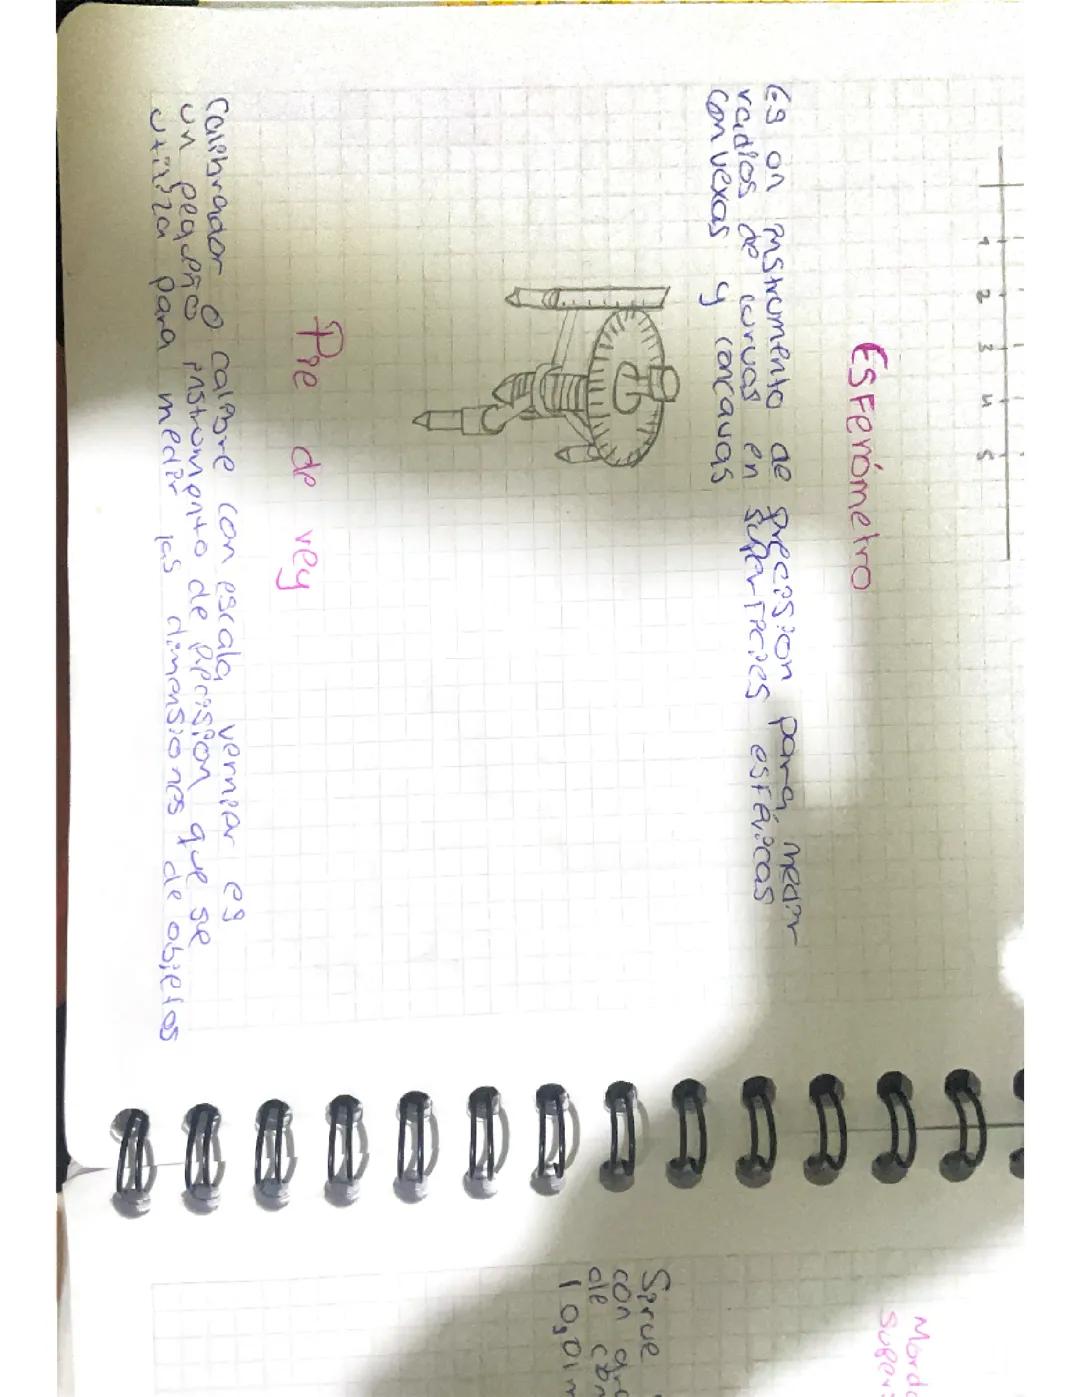 1 2 3 4 5
Esferómetro
Es on instrumento de precision para medir
radios de curvas en superficies esféricas
convexas y concavas
Pie de rey
Calibrador o calibre con escala vernier es
un pequeño instrumento de precision que se
utiliza para medir las dimensiones de objetos
Sirve
con
de